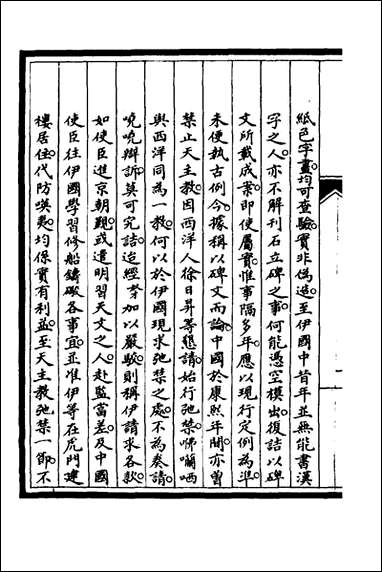 紙色字畫均可查驗實非僞造至伊國中昔年並無能書漢
字之人亦不解刊石立碑之事何能憑空模出復詰以碑
文所載成案即使屬實惟事隔多年應以現行定例為準
未便執古例今據稱以碑文而論中國於康熙年間亦曽
禁止天主教因西洋人徐日昇等懇請始行弛禁咈囒哂
與西洋同為一教何以於伊國現求弛禁之處不為奏請
嘵嘵辯訴莫可究詰迨經 加以嚴駁則稱伊請求各款
如使臣進京朝覲或遣明習天文之人赴監當差及中國
使臣往伊國學習修船鑄礮各事宜並准伊等在虎門建
樓居住代防𠸄夷均係實有利益至天主教弛禁一節不